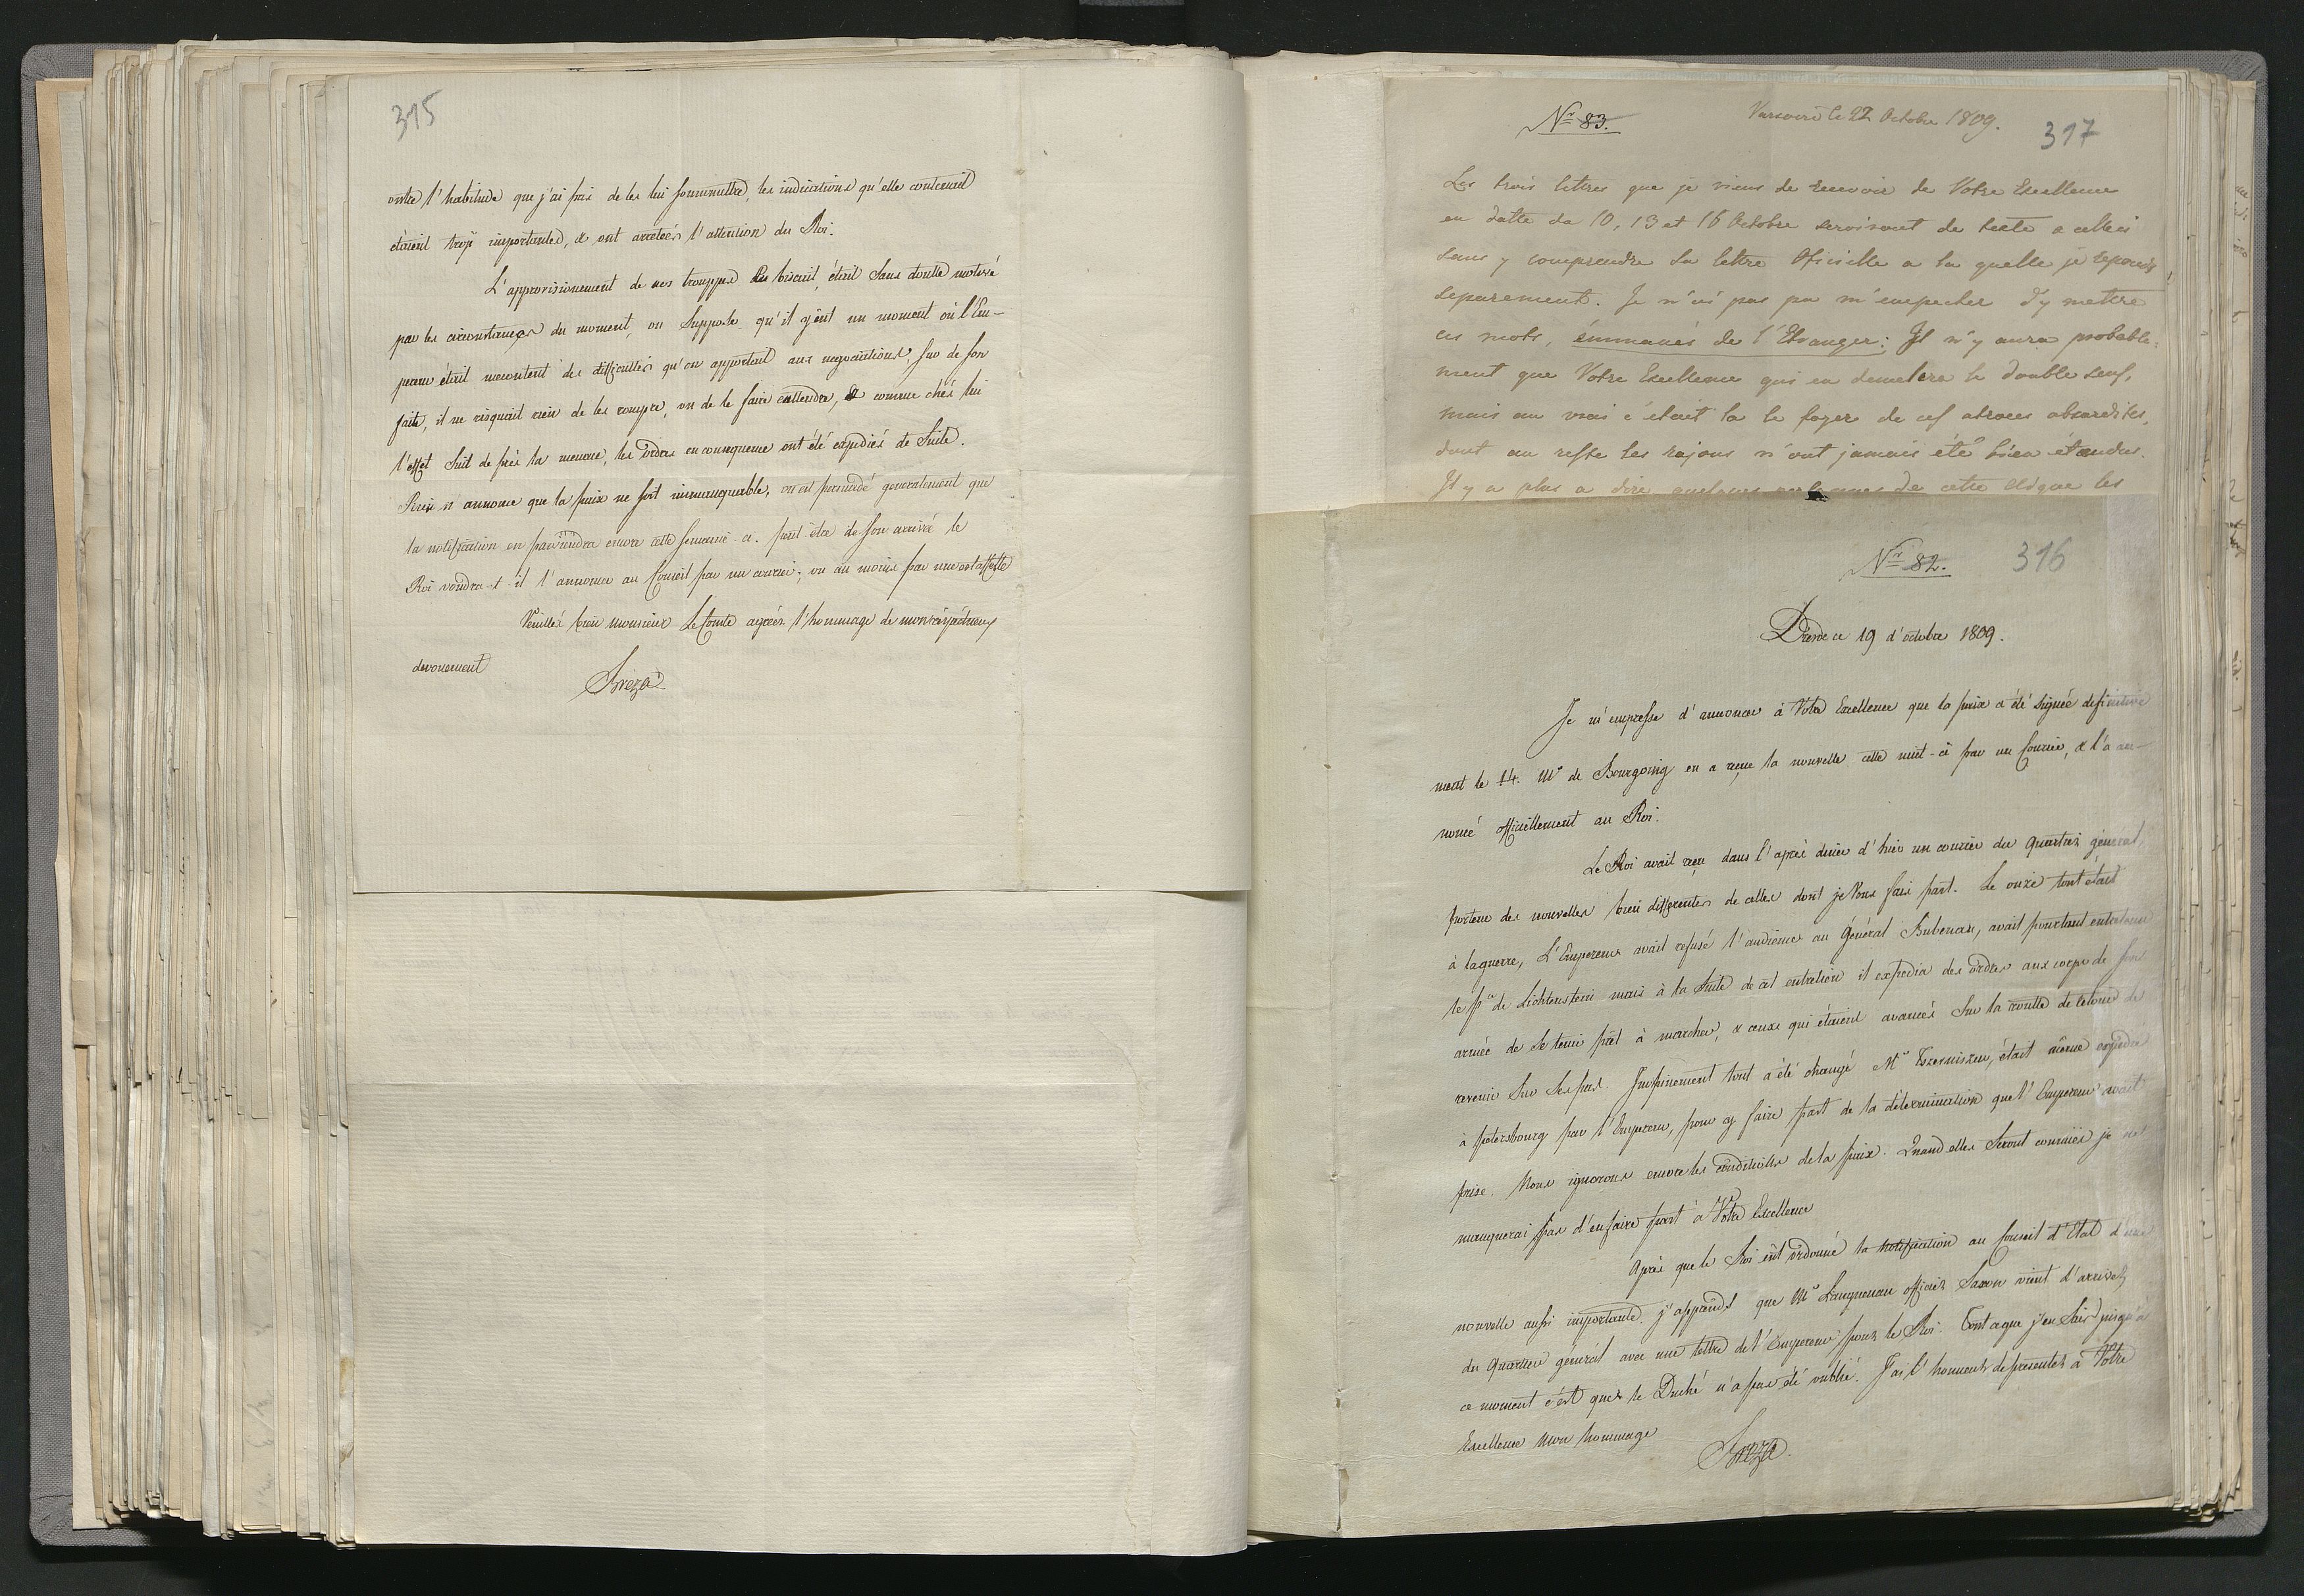 315
outre l'habitude que j'ai pris de les lui soummettre, les indications qu'elle contenait
étaient trop importantes, & ont arretées l'attention du Roi.
L'approvisionement de nos trouppes en biscuit, était sans doutte motivé
par les circonstances du moment, on suppose qu'il y eut un moment où l'Em-
pereur était mecontent des difficultés qu'on apportait aux negociations, sur de son
fait, il ne risquait rien de les rompre, ou de le faire entendre, & comme chés lui
l'effet suit de près la menace, les ordres en consequence ont été expediés de suite.
Rien n'annonce que la paix ne soit immanquable, on est persuadé generalement que
la notification en parviendra encore cette semaine-ci. peut-être de son arrivé le
Roi voudra-t-il l'annoncer au Conseil par un courier, ou au moins par une estaffette
Veuilléz bien monsieur Le Comte agréer l'hommage de mon respectueux
devouement
Breza
Nr 83.
Varsovie le 22 Octobre 1809.
317
Les trois lettres que je viens de recevoir de Votre Excellence
en datte du 10, 13 et 16 Octobre serviront de texte a celleci
sans y comprendre la lettre Oficielle a la quelle je reponds
separement. Je n'ai pas pu m'empecher d'y mettre
ces mots, émmanés de l'Etranger; Il n'y aura probable=
ment que Votre Excellence qui en demelera le double sens,
mais au vrai c'etait la le foyer de ces atroces absurdites,
dont au reste les rajons n'ont jamais été bien étendus.
Il y a plus a dire, quelques de cette clique les
Nr 82.
316
Dresde ce 19 d'octobre 1809.
Je m'empresse d'annoncer à Votre Excellence que la paix a été signée definitive
ment le 14. Mr de Bourgoing en a reçue la nouvelle cette nuit-ci par un Courier, & l'a an-
noncé officiellement au Roi.
Le Roi avait reçu dans l'après diner d'hier un courier du Quartier général,
porteur des nouvelles bien differentes de celles dont je Vous fais part. Le onze tout était
à la guerre, L'Empereur avait refusé l'audience au Général Bubenau, avait pourtant entretenu
le Pce de Lichtenstein mais à la suite de cet entretien il expedia des ordres aux corps de son
armée de se tenir prêt à marcher, & ceux qui étaient avancés sur la routte de retour de
revenir sur ses pas. Inopinement tout a été changé Mr Tszerniszew, était même expedié
à petersbourg par l'Empereur, pour y faire part de la détermination que l'Empereur avait
prise. Nous ignorons encore les conditions de la paix. Quand elles seront connües je ne
manquerai pas d'en faire part à Votre Excellence
Après que le Roi eut ordonné la notification au Conseil d'Etat d'une
nouvelle aussi importante. j'apprends que Mr Langenau officier Saxon vient d'arriver,
du Quartier général avec une lettre de l'Empereur pour le Roi. Tout ce que j'en sais jusqu'à
ce moment c'est que le Duché n'a pas été oublié. J'ai l'honneur de presenter à Votre
Excellence mon hommage
Breza.